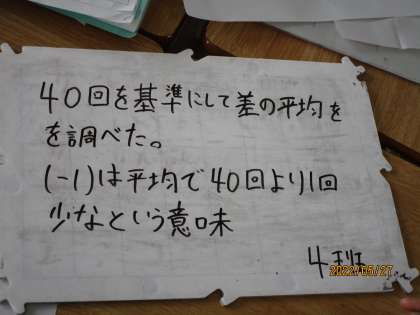 40回を基準にして差の平均を
を調べた。
(-1)は平均で40回より1回
少なという意味
4班
2022/05/27